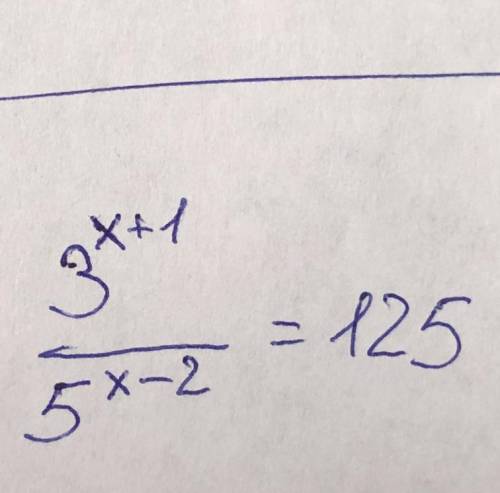 3^{x+1}
/ 5^{x-2} = 125